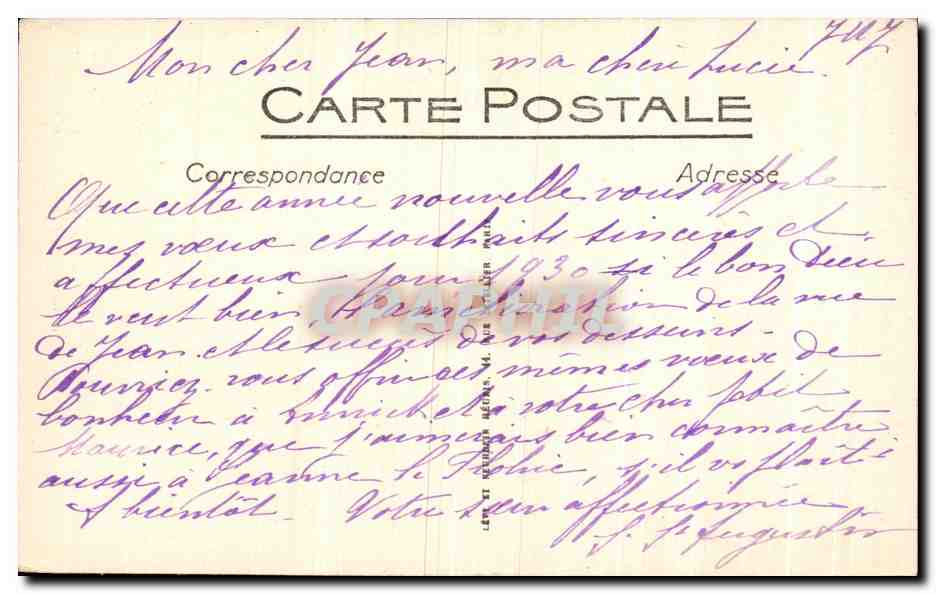 JMJ
Mon cher Jean, ma chère Lucie.
CARTE POSTALE
Correspondance
Adresse
Que cette année nouvelle vous apporte
mes vœux et souhaits sincères et
affectueux pour 1930 si le bon Dieu
le veut bien, l'amélioration de la vue
de Jean et le succès de vos desseins.
Pourriez-vous offrir ces mêmes vœux de
bonheur à et à votre cher petit
Maurice, que j'aimerais bien connaître
aussi à Jeanne le s'il vs plaît.
A bientôt. Votre sœur affectionnée
S. St Augustin
LÉVY ET NEURDEIN RÉUNIS, 44, RUE LETELLIER, PARIS
CPAPHIL